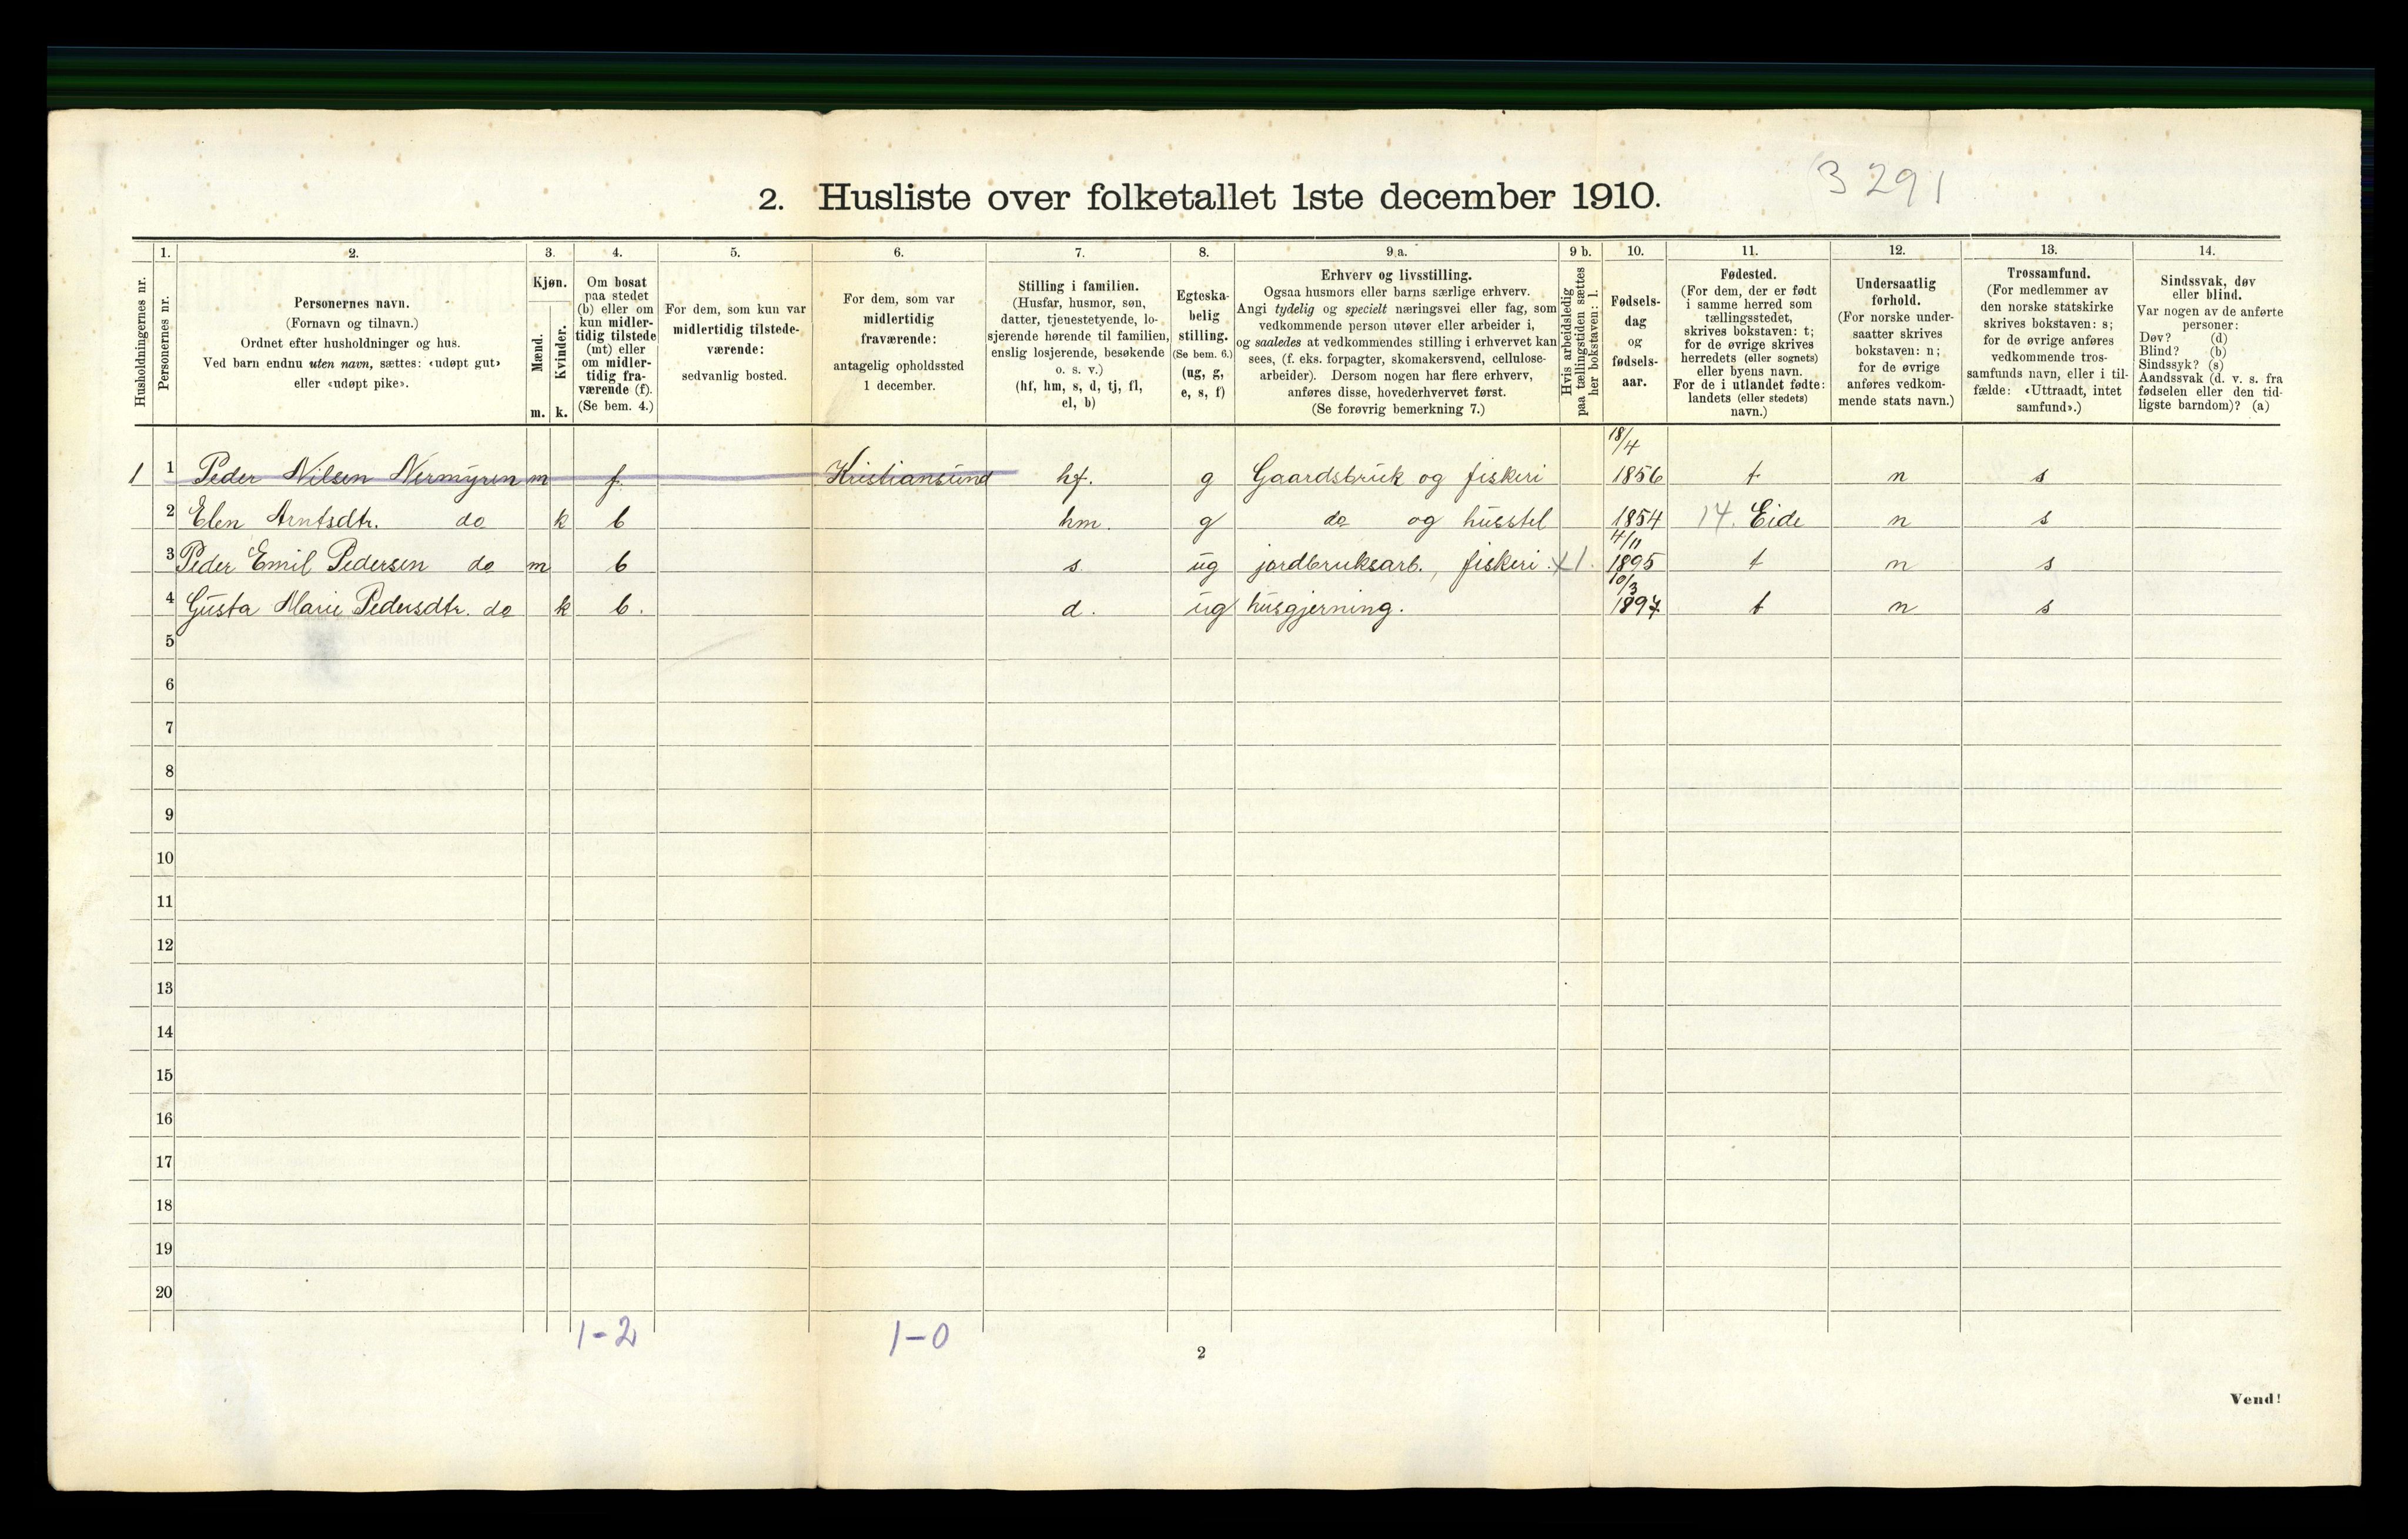 3 291
2. Husliste over folketallet 1ste december 1910.
Husholdningernes nr.
1. Personernes nr.
2. Personernes navn.
(Fornavn og tilnavn.)
Ordnet efter husholdninger og hus.
Ved barn endnu uten navn, sættes: «udøpt gut»
eller «udøpt pike».
3. Kjøn.
Mænd. m.
Kvinder. k.
4. Om bosat
paa stedet
(b) eller om
kun midler-
tidig tilstede
(mt) eller
om midler-
tidig fra-
værende (f).
(Se bem. 4.)
5. For dem, som kun var
midlertidig tilstede-
værende:
sedvanlig bosted.
6. For dem, som var
midlertidig
fraværende:
antagelig opholdssted
1 december.
7. Stilling i familien.
(Husfar, husmor, søn,
datter, tjenestetyende, lo-
sjerende hørende til familien,
enslig losjerende, besøkende
o. s. v.)
(hf, hm, s, d, tj, fl,
el, b)
8. Egteska-
belig
stilling.
(Se bem. 6.)
(ug, g,
e, s, f)
9 a. Erhverv og livsstilling.
Ogsaa husmors eller barns særlige erhverv.
Angi tydelig og specielt næringsvei eller fag, som
vedkommende person utøver eller arbeider i,
og saaledes at vedkommendes stilling i erhvervet kan
sees, (f. eks. forpagter, skomakersvend, cellulose-
arbeider). Dersom nogen har flere erhverv,
anføres disse, hovederhvervet først.
(Se forøvrig bemerkning 7.)
9 b. Hvis arbeidsledig
paa tællingstiden sættes
her bokstaven: l.
10. Fødsels-
dag
og
fødsels-
aar.
11. Fødested.
(For dem, der er født
i samme herred som
tællingsstedet,
skrives bokstaven: t;
for de øvrige skrives
herredets (eller sognets)
eller byens navn.
For de i utlandet fødte:
landets (eller stedets)
navn.)
12. Undersaatlig
forhold.
(For norske under-
saatter skrives
bokstaven: n;
for de øvrige
anføres vedkom-
mende stats navn.)
13. Trossamfund.
(For medlemmer av
den norske statskirke
skrives bokstaven: s;
for de øvrige anføres
vedkommende tros-
samfunds navn, eller i til-
fælde: «Uttraadt, intet
samfund».)
14. Sindssvak, døv
eller blind.
Var nogen av de anførte
personer:
Døv? (d)
Blind? (b)
Sindssyk? (s)
Aandssvak (d. v. s. fra
fødselen eller den tid-
ligste barndom)? (a)
1 1 Peder Nilsen Nermyren m f. Kristiansund hf. g Gaardsbruk og fiskeri 18/4 1856 t n s
2 Elen Arntsdtr. do k b hm. g do og husstel 1854 14. Eide n s
3 Peder Emil Pedersen do m b s. ug jordbruksarb., fiskeri. x l. 4/11 1895 t n s
4 Gusta Marie Pedersdtr. do k b. d. ug husgjerning. 10/3 1897 t n s
5
6
7
8
9
10
11
12
13
14
15
16
17
18
19
20
1-2 1-0
2
Vend!